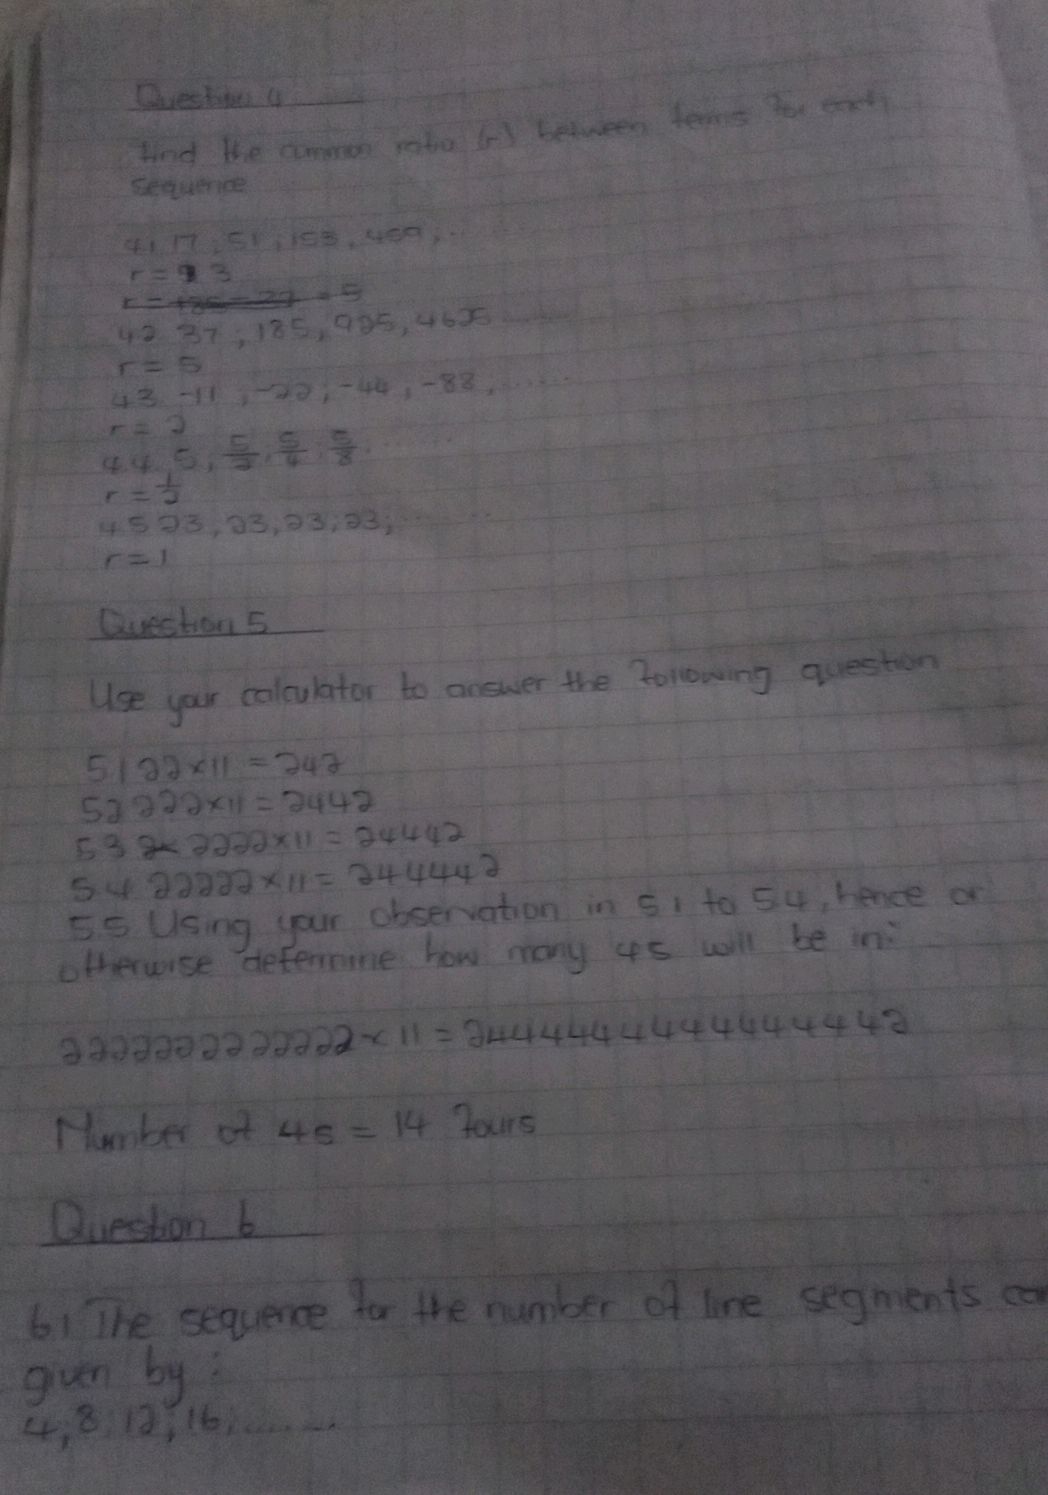 Question 4
find the common ratio (r) between terms for each
sequence
4.1 17, 51, 153, 459, ......
r = 3
r = 185 - 37 = 5
42 37, 185, 925, 4625 ......
r = 5
43 -11, -22, -44, -88, ......
r = 2
4.4. 5, 5/2, 5/4, 5/8, ......
r = 1/2
4.5 23, 23, 23, 23, ......
r = 1
Question 5
Use your calculator to answer the following question
51 22×11 = 242
52 222×11 = 2442
53 2222×11 = 24442
54 22222×11 = 244442
55 Using your observation in 51 to 54, hence or
otherwise determine how many 4s will be in:
Number of 4s = 14 fours
Question 6
61 The sequence for the number of line segments can
given by :
4, 8, 12, 16, .......